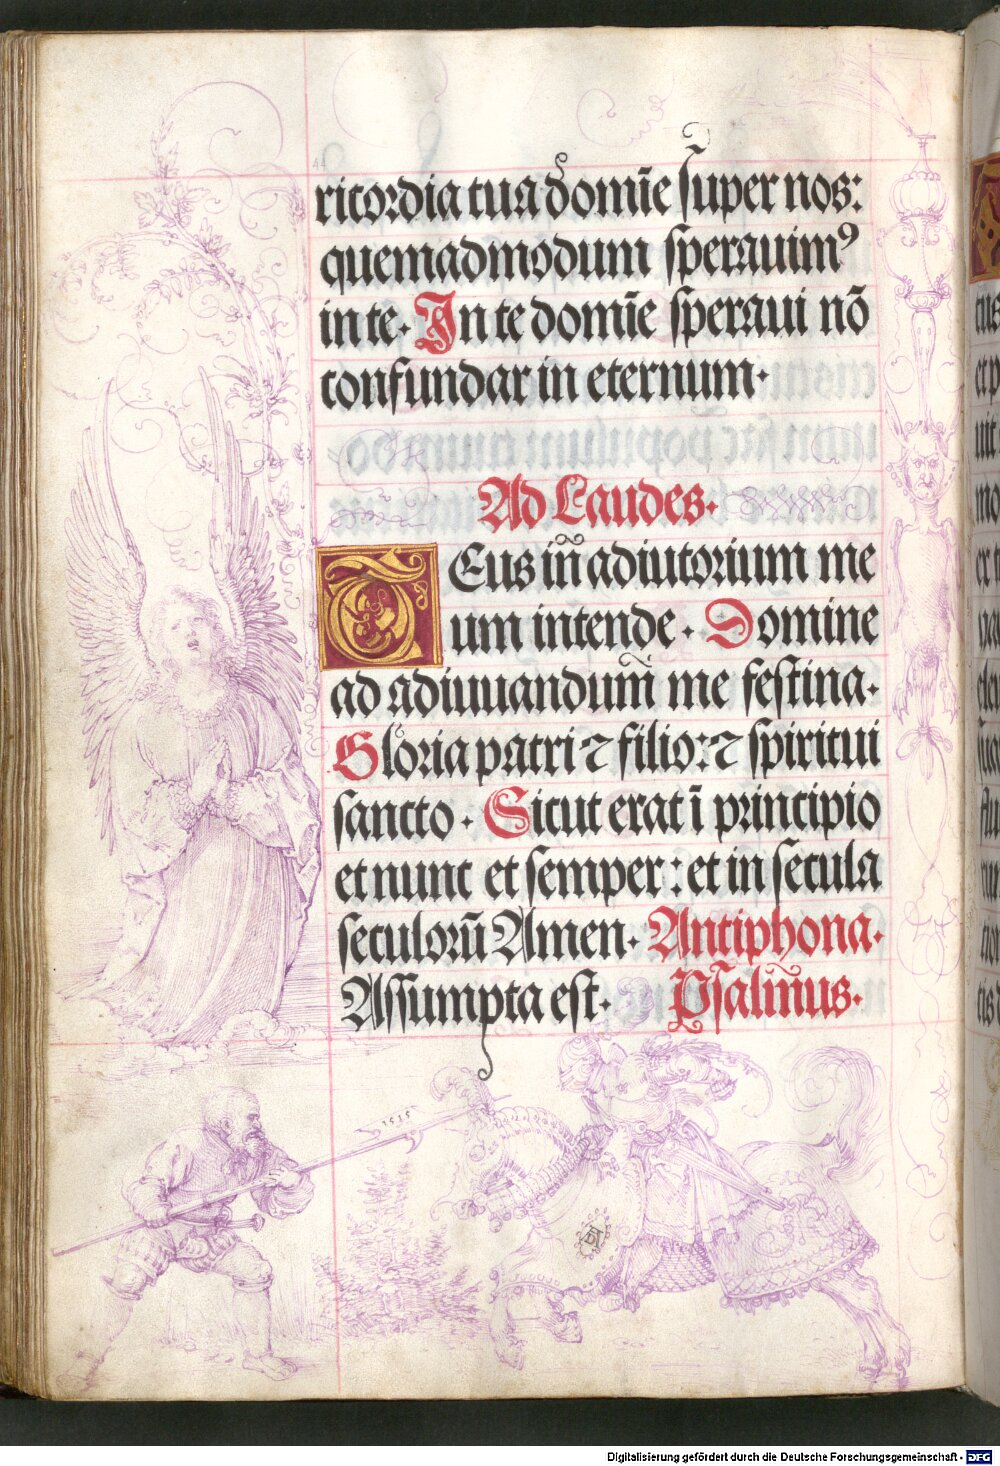 44
ricordia tua domīe sūper nos:
quemadmodum sperauimꝰ
in te. In te domīe speraui nō
confundar in eternum.
Ad Laudes.
DEus in̄ adiutorium me
um intende. Domine
ad adiuuandum̄ me festina.
Gloria patri ⁊ filio: ⁊ spiritui
sancto. Sicut erat ī principio
et nunc et semper: et in secula
seculorū Amen. Antiphona.
Assumpta est. Psalm̄us.
1515
AD
Digitalisierung gefördert durch die Deutsche Forschungsgemeinschaft - DFG